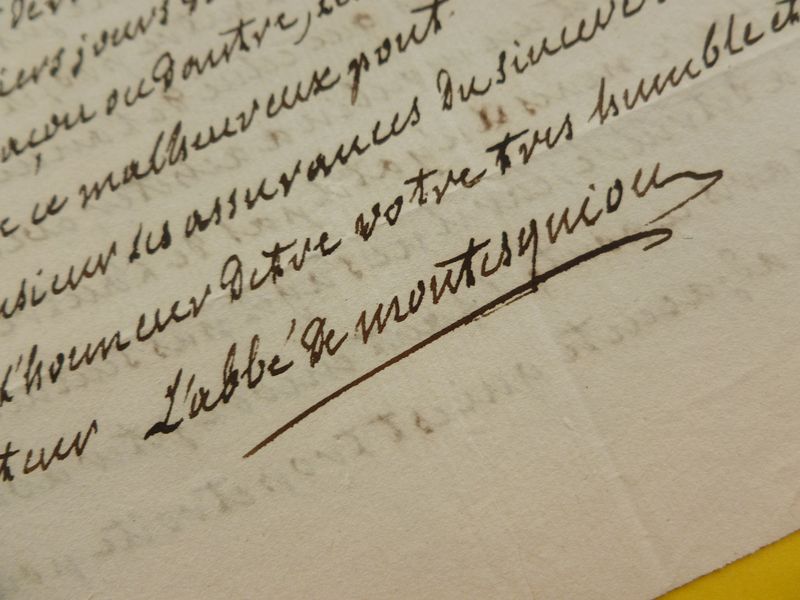 iers jours
açon ou dautre,
ce malheureux pont.
nsieur les assurances du sincere
L'honneur detre votre tres humble et
teur L'abbé de montesquiou